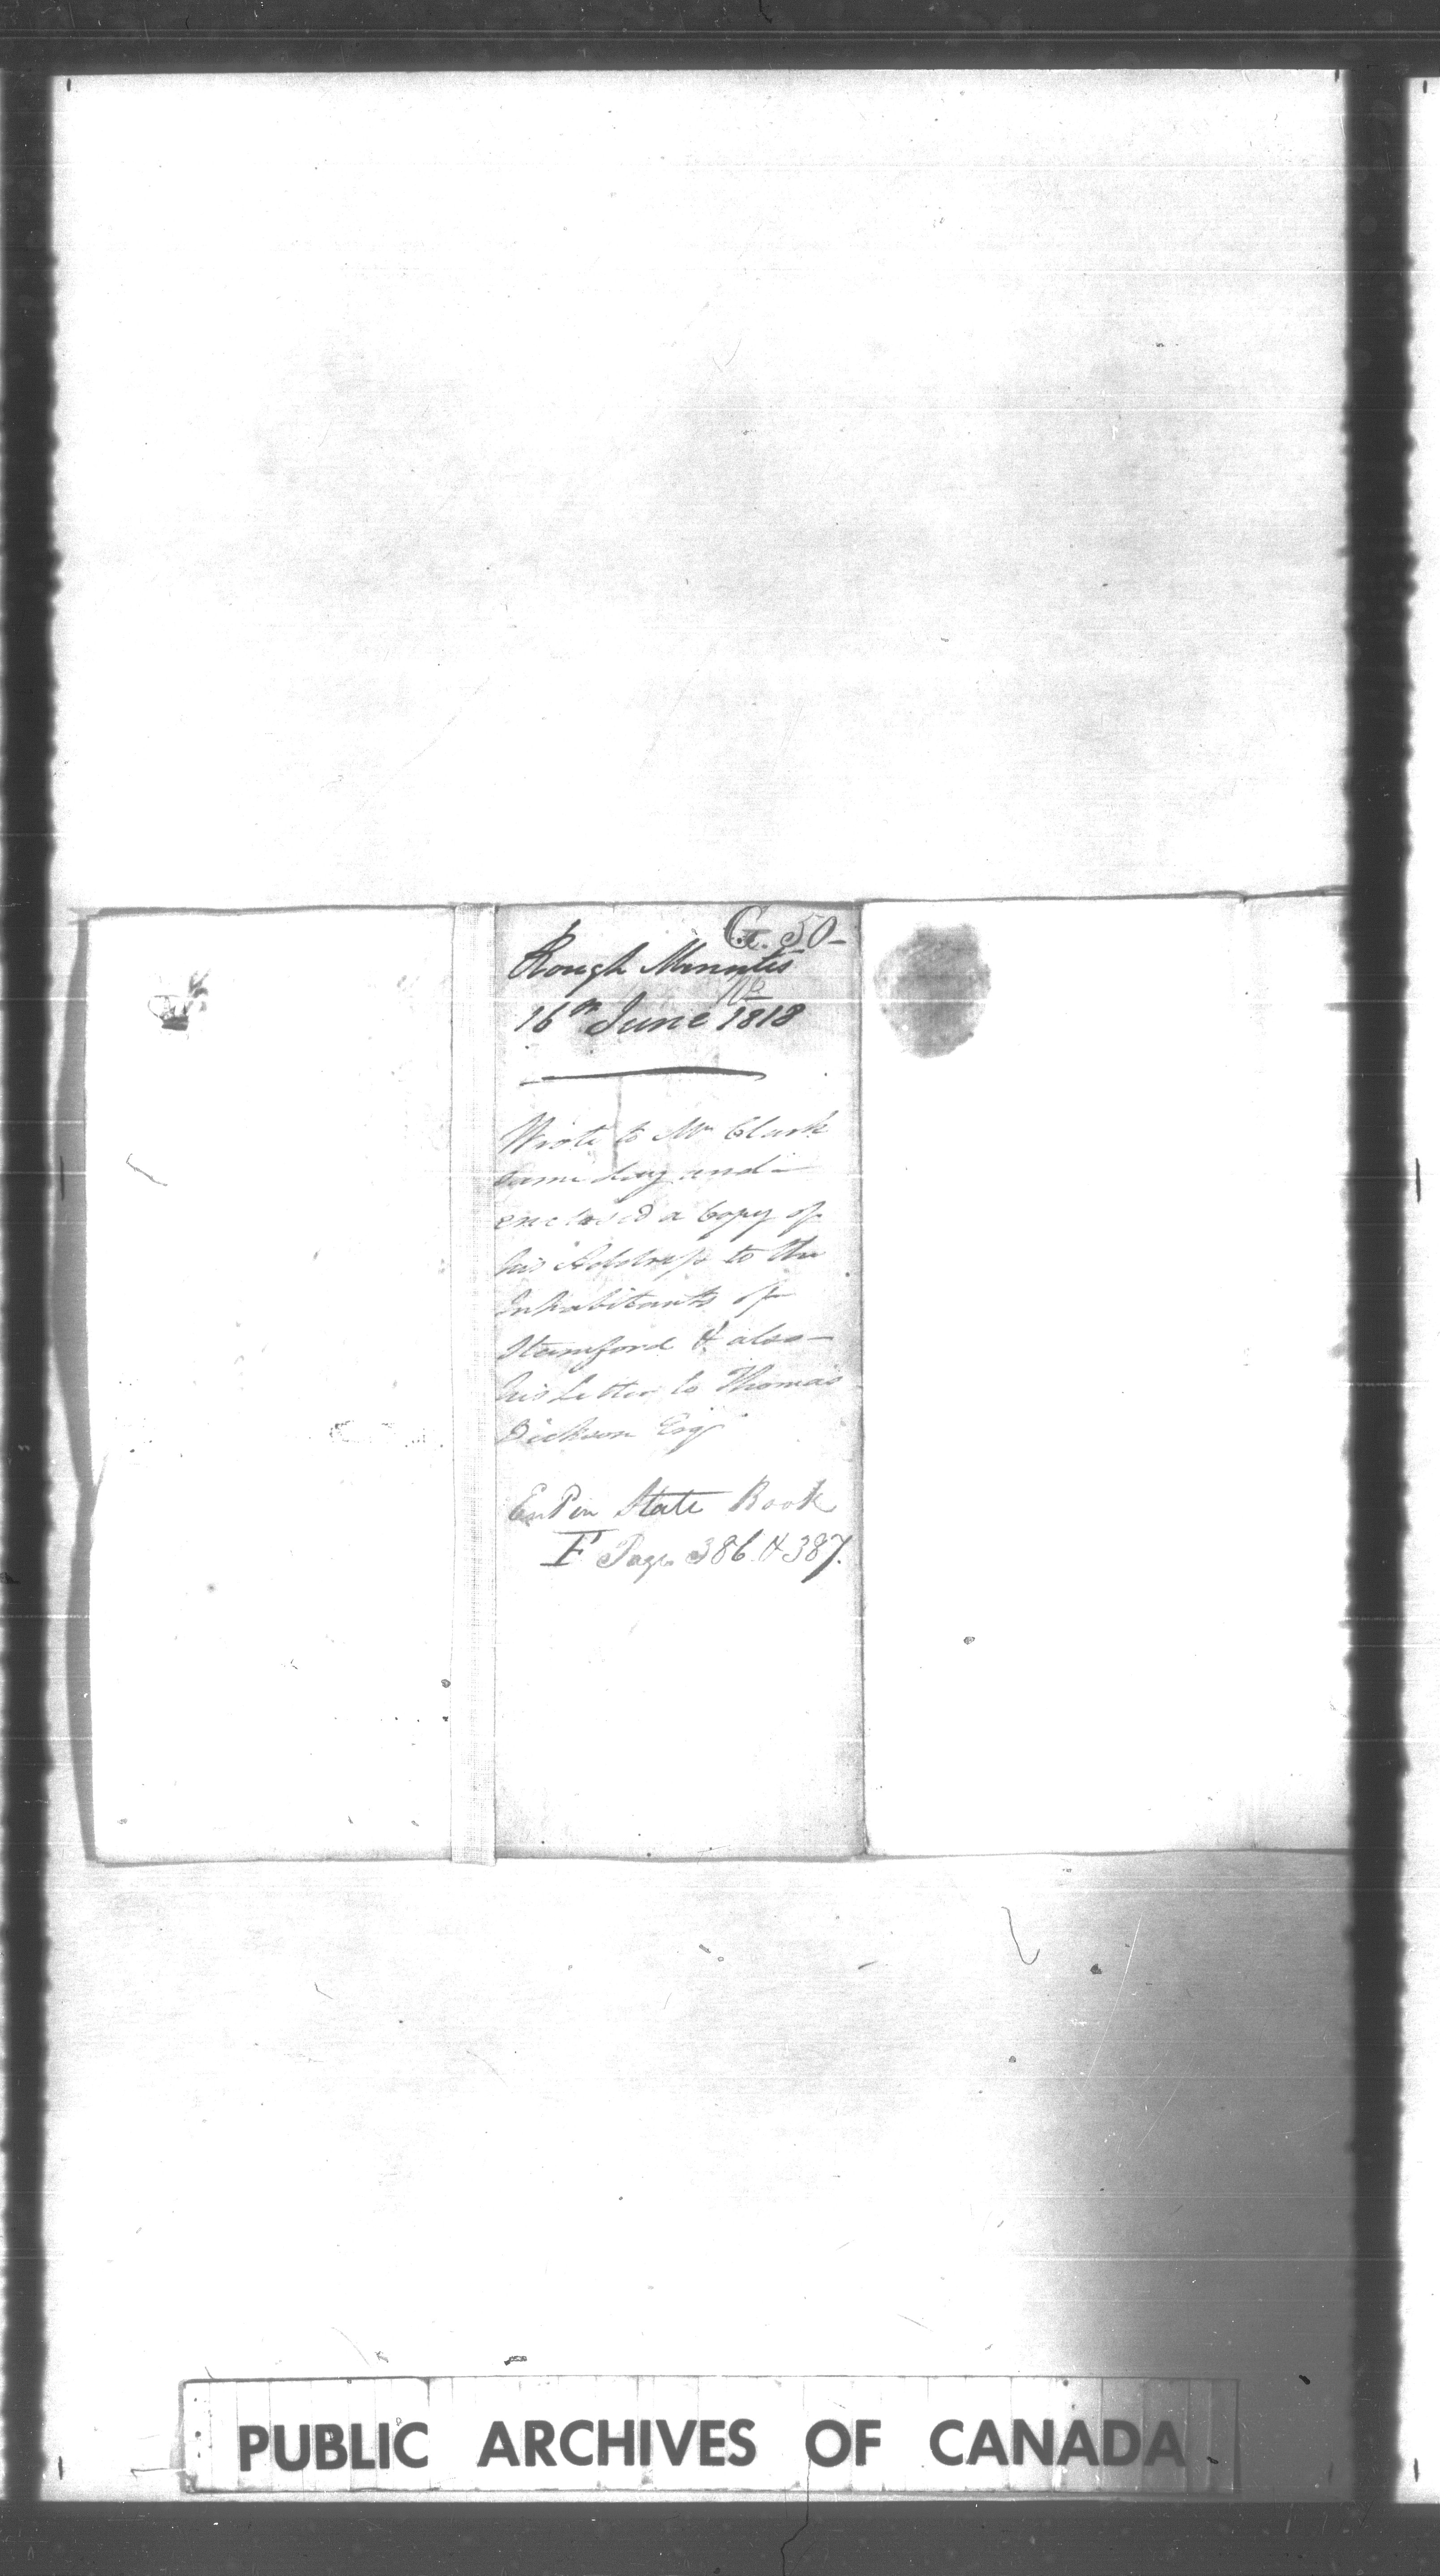 G. 50-
Rough Minutes
16th June 1818
Wrote to Mr Clark
same day and
enclosed a Copy of
his Address to the
Inhabitants of
Stamford & also
his Letter to Thomas
Dickson Esqr
Entd in State Book
F Page 386 & 387.
PUBLIC ARCHIVES OF CANADA